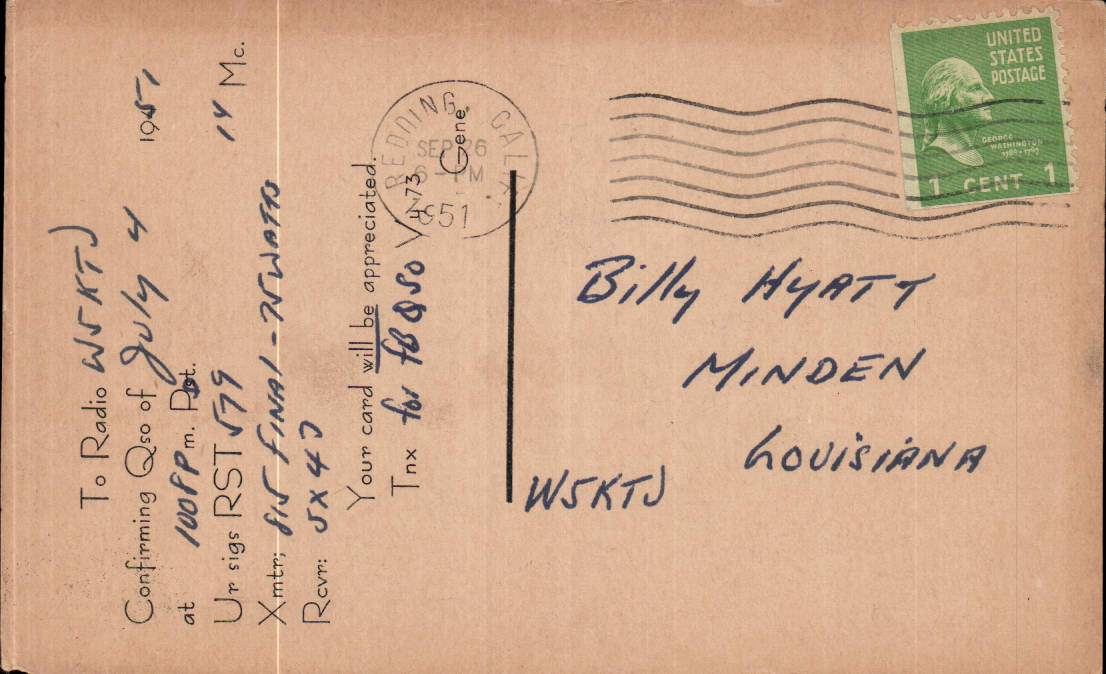 To Radio W5KTJ
Confirming Qso of July 4 1951
at 100 P Pm. Pst.
Ur sigs RST 579 14 Mc.
Xmtr; 815 FINAL - 75 WATTS
Rcvr: SX 43
Your card will be appreciated.
Tnx for fB QSO V 73 Gene.
REDDING CALIF.
SEP 26
6 - PM
1951
UNITED
STATES
POSTAGE
GEORGE
WASHINGTON
1789 - 1797
1 CENT 1
Billy HYATT
MINDEN
LOUISIANA
W5KTJ